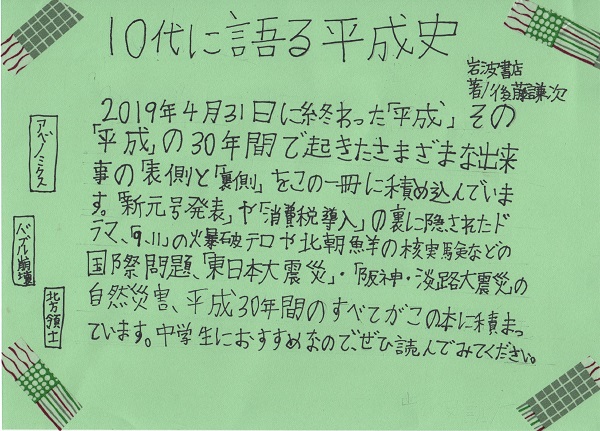 10代に語る平成史
岩波書店
著/後藤謙次
2019年4月31日に終わった「平成」その
「平成」の30年間で起きたさまざまな出来
事の「表側」と「裏側」をこの一冊に積め込んでいま
す。「新元号発表」や「消費税導入」の裏に隠されたド
ラマ、「9.11」の爆破テロや北朝鮮の核実験などの
国際問題、「東日本大震災」・「阪神・淡路大震災」の
自然災害、平成30年間のすべてがこの本に積まっ
ています。中学生におすすめなので、ぜひ読んでみてください。
アベノミクス
バブル崩壊
北方領土